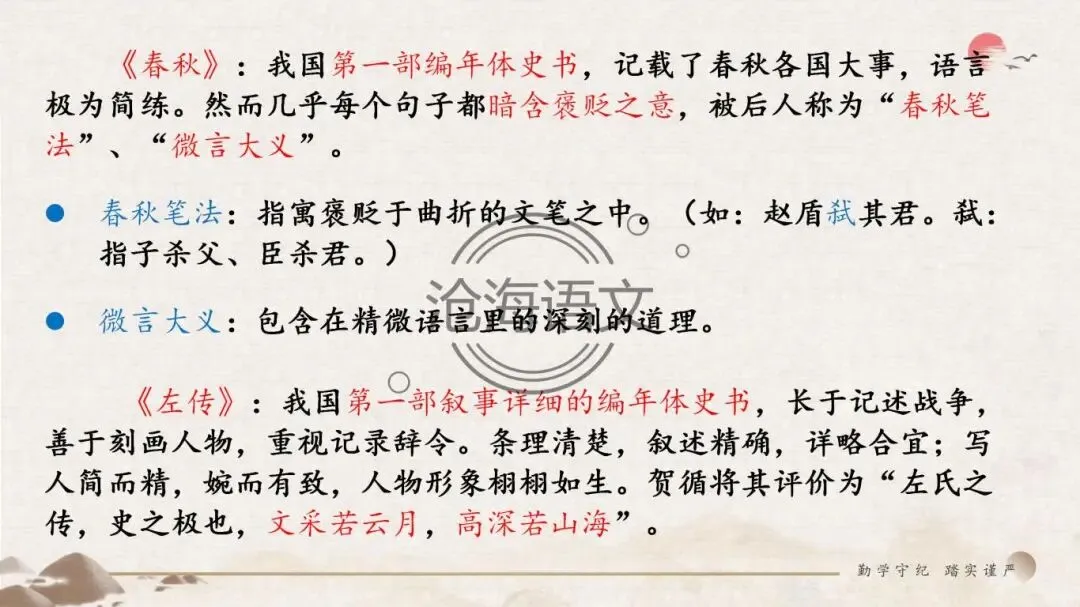 《春秋》：我国第一部编年体史书，记载了春秋各国大事，语言
极为简练。然而几乎每个句子都暗含褒贬之意，被后人称为“春秋笔
法”、“微言大义”。
春秋笔法：指寓褒贬于曲折的文笔之中。（如：赵盾弑其君。弑：
指子杀父、臣杀君。）
沧海语文
微言大义：包含在精微语言里的深刻的道理。
《左传》：我国第一部叙事详细的编年体史书，长于记述战争，
善于刻画人物，重视记录辞令。条理清楚，叙述精确，详略合宜；写
人简而精，婉而有致，人物形象栩栩如生。贺循将其评价为“左氏之
传，史之极也，文采若云月，高深若山海”。
勤学守纪 踏实谨严